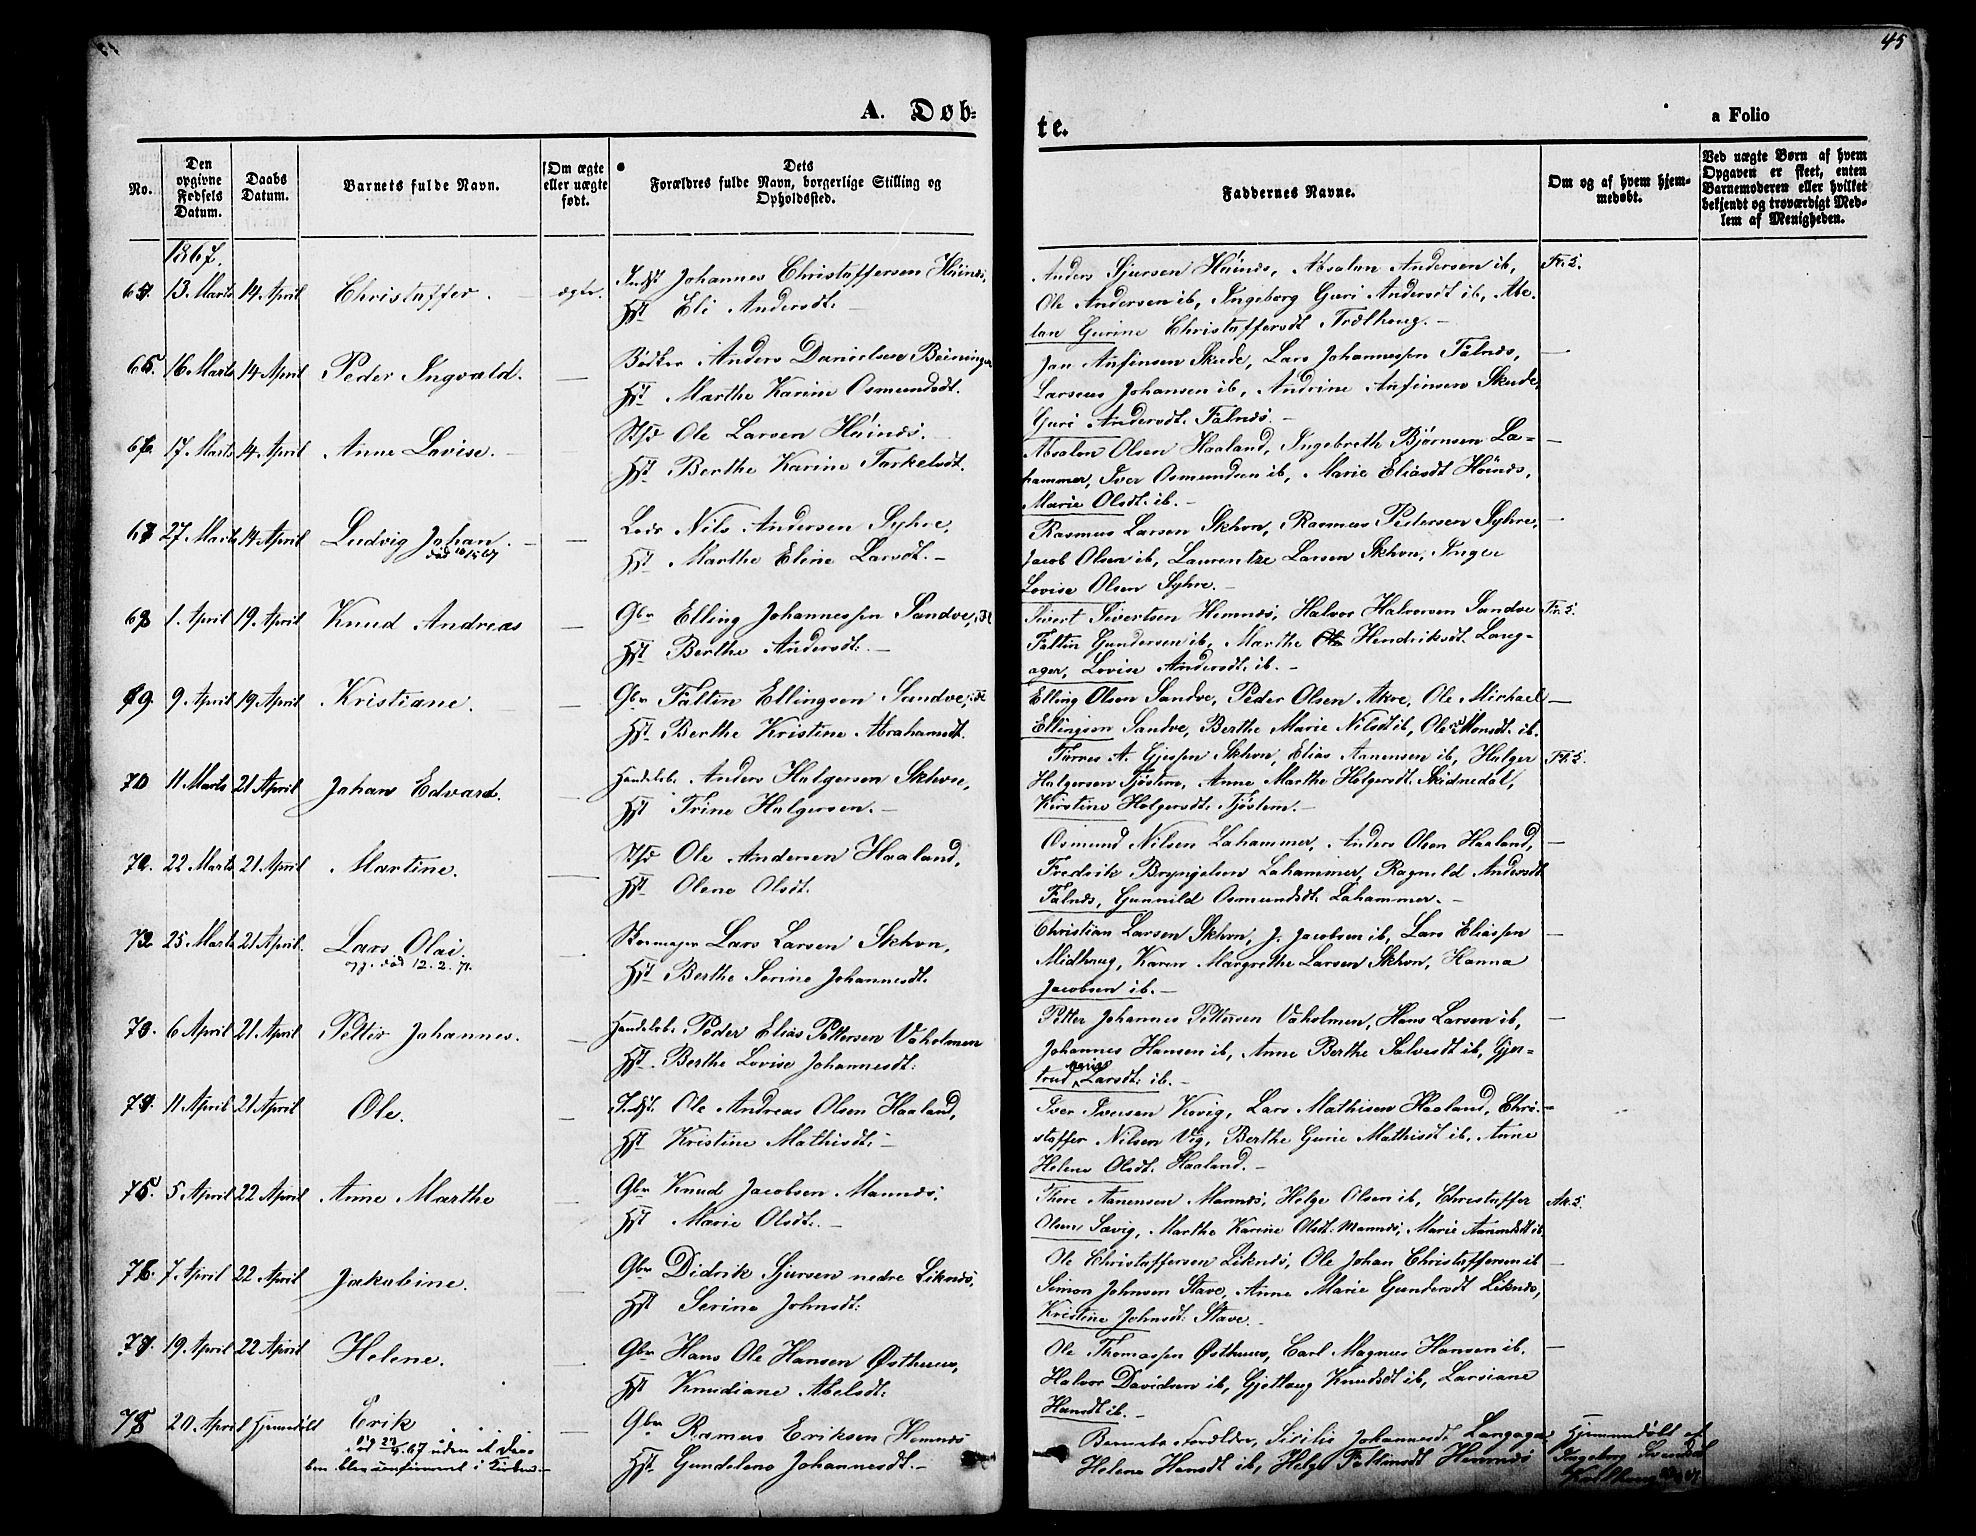 45
A. Døb-
te.
a Folio
No.
Den opgivne Fødsels Datum.
Daabs Datum.
Barnets fulde Navn.
Om ægte eller uægte født.
Dets Forældres fulde Navn, borgerlige Stilling og Opholdssted.
Faddernes Navne.
Om og af hvem hjem-
medøbt.
Ved uægte Børn af hvem
Opgaven er skeet, enten
Barnemoderen eller hvilket
bekjendt og troværdigt Med-
lem af Menigheden.
1867.
13 Marts 14 April Christaffer. ægte. Indst Johannes Christaffersen
Hst Eli Andersdt.
Anders Sjursen Høines, Absalon Andersen ib,
Ole Andersen ib, Ingeborg Guri Andersdt ib,
Gurine Christaffersdt
65. 16 Marts 14 April Peder Ingvald. Bødker Anders Danielsen
Hst Marthe Karine Osmundsdt.
Jan Anfinsen Skude, Lars Johannessen Falnes,
Larseus Johansen ib, Andrine Anfinsen Skude,
Guri Andersdt. Falnes.
66. 17 Marts 14 April Anne Lovise. Ole Larsen Høines.
Hst Berthe Karine Tarkelsdt.
Absalon Olsen Haaland, Ingebreth Bjørnsen La-
hammer, Iver Osmundsen ib, Marie Eliasdt Høines,
Marie Olsdt. ib.
67 27 Marts 14 April Ludvig Johan. Lods Nils Andersen Syhre,
Hst Marthe Eline Larsdt.
Rasmus Larsen Skhvn, Rasmus Pedersen Syhre,
Jacob Olsen ib, Laurentze Larsen Skhvn, Inger
Lovise Olsen Syhre.
68 1. April 19 April Knud Andreas Gbr Elling Johannessen Sandve,
Hst Berthe Andersdt.
Sivert Sivertsen Hemnes, Halvor Halvorsen Sandve Fr. 5.
Faltin Gundersen ib, Marthe Hendriksdt. Lang-
ager, Lovise Andersdt. ib.
69. 9 April 19 April Kristiane. Gbr Faltin Ellingsen Sandve,
Hst Berthe Kristine Abrahamsdt.
Elling Olsen Sandve, Peder Olsen Akre, Ole Michael
Ellingsen Sandve, Berthe Marie Nilsdt ib,
70 11 Marts 21 April Johan Edvard. Handelsb. Anders Holgersen Skhvn,
Hst Trine Holgersen.
A. Gjessen Skhvn, Elias Aanensen ib, Holger
Holgersen Tjøstem, Anne Marthe Holgersdt.
Kirstine Holgersdt. Tjøstem.
71. 22 Marts 21 April Martine. Ole Andersen Haaland,
Hst Olene Olsdt.
Osmund Nilsen Lahammer, Anders Olsen Haaland,
Fredrik Bryngelsen Lahammer, Ragnild Andersdt
Falnes, Gunnild Osmundsdt. Lahammer.
72. 25 Marts 21 April. Lars Olai. Lars Larsen Skhvn,
opg. død 12.2.71.
Hst Berthe Serine Johannesdt.
Christian Larsen Skhvn, J. Jacobsen ib, Lars Eliassen
Midhaug, Karen Margrethe Larsen Skhvn, Hanna
Jacobsen ib.
73. 6 April 21 April Petter Johannes. Handelsb. Peder Elias Pettersen Vaholmen
Hst. Berthe Lovise Johannesdt.
Petter Johannes Pettersen Vaholmen, Hans Larsen ib,
Johannes Hansen ib, Anne Berthe Salvesdt ib, Gjer-
trud Marie Larsdt: ib.
74. 11 April 21 April Ole. Indst. Ole Andreas Olsen Haaland,
Hst Kristine Mathisdt.
Iver Iversen Kovig, Lars Mathisen Haaland, Chri-
staffer Nilsen Vig, Berthe Gurie Mathisdt ib, Anne
Helene Olsdt. Haaland.
75. 5 April 22 April Anne Marthe Gbr Knud Jacobsen Mannes,
Hst Marie Olsdt.
Thore Aanensen Mannes, Helge Olsen ib, Christaffer
Olsen Sævig, Marthe Karine Olsdt. Mannes, Marie Aanensdt ib.
76. 7 April 22 April Jakobine. Gbr Didrik Sjursen nedre Liknes,
Hst Serine Johnsdt.
Ole Christaffersen Liknes, Ole Johan Christaffersen ib
Simon Johnsen Stave, Anne Marie Gundersdt Liknes,
Kristine Johnsdt: Stave.
77. 19 April 22 April Helene. Gbr Hans Ole Hansen Østhuus,
Hst Knudiane Abelsdt:
Ole Thomassen Østhuus, Carl Magnus Hansen ib.
Halvor Davidsen ib, Gjertoug Knudsdt ib, Larsiane
Hansdt ib.
78 20. April Hjemmedøbt Erik Gbr Rasmus Eriksen Hemnes
Hst Gundelene Johannesdt.
Barnets Forældre, Johannesdt Langager
Helene Hansdt ib, Helge Faltansdt Hemnes
Hjemmedøbt af
Ingeborg